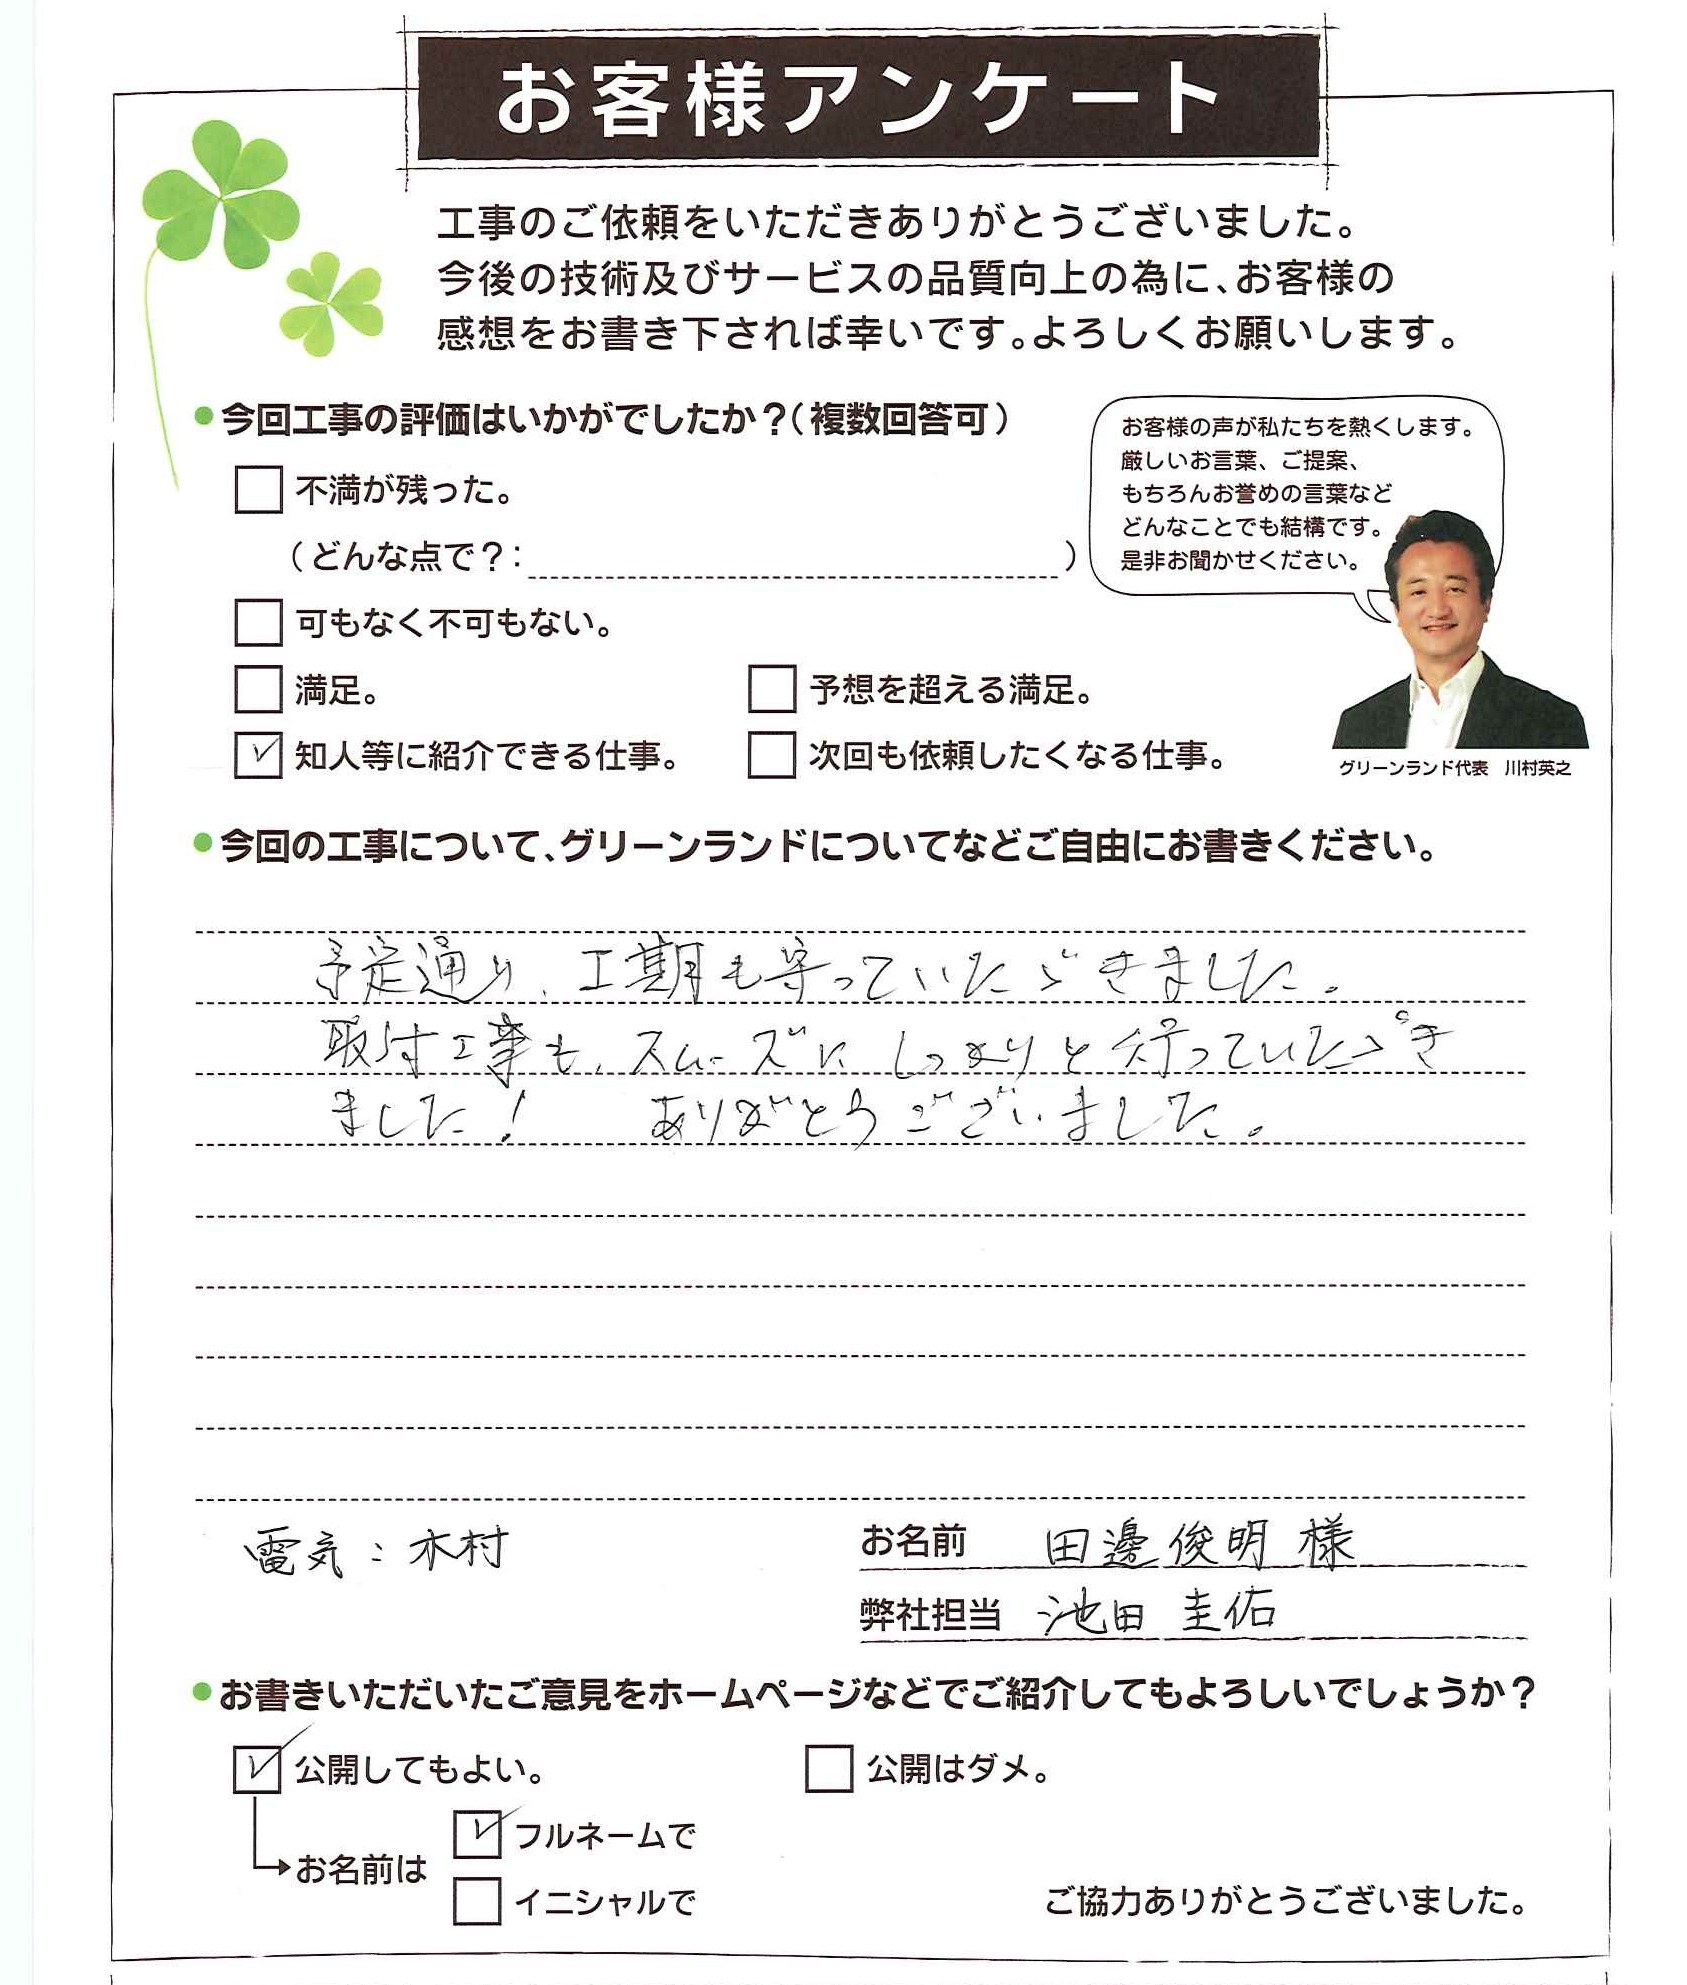 お客様アンケート
工事のご依頼をいただきありがとうございました。
今後の技術及びサービスの品質向上の為に、お客様の
感想をお書き下されば幸いです。よろしくお願いします。
●今回工事の評価はいかがでしたか？（複数回答可）
お客様の声が私たちを熱くします。
厳しいお言葉、ご提案、
もちろんお誉めの言葉など
どんなことでも結構です。
是非お聞かせください。
グリーンランド代表　川村英之
□ 不満が残った。
（どんな点で？：　　　　）
□ 可もなく不可もない。
□ 満足。　□ 予想を超える満足。
☑ 知人等に紹介できる仕事。　□ 次回も依頼したくなる仕事。
●今回の工事について、グリーンランドについてなどご自由にお書きください。
予定通り、工期も守っていただきました。
取付工事も、スムーズに しっかりと行っていただき
ました！　ありがとうございました。
電気：木村
お名前　田邊俊明 様
弊社担当　池田 圭佑
●お書きいただいたご意見をホームページなどでご紹介してもよろしいでしょうか？
☑ 公開してもよい。　□ 公開はダメ。
お名前は
☑ フルネームで
□ イニシャルで
ご協力ありがとうございました。